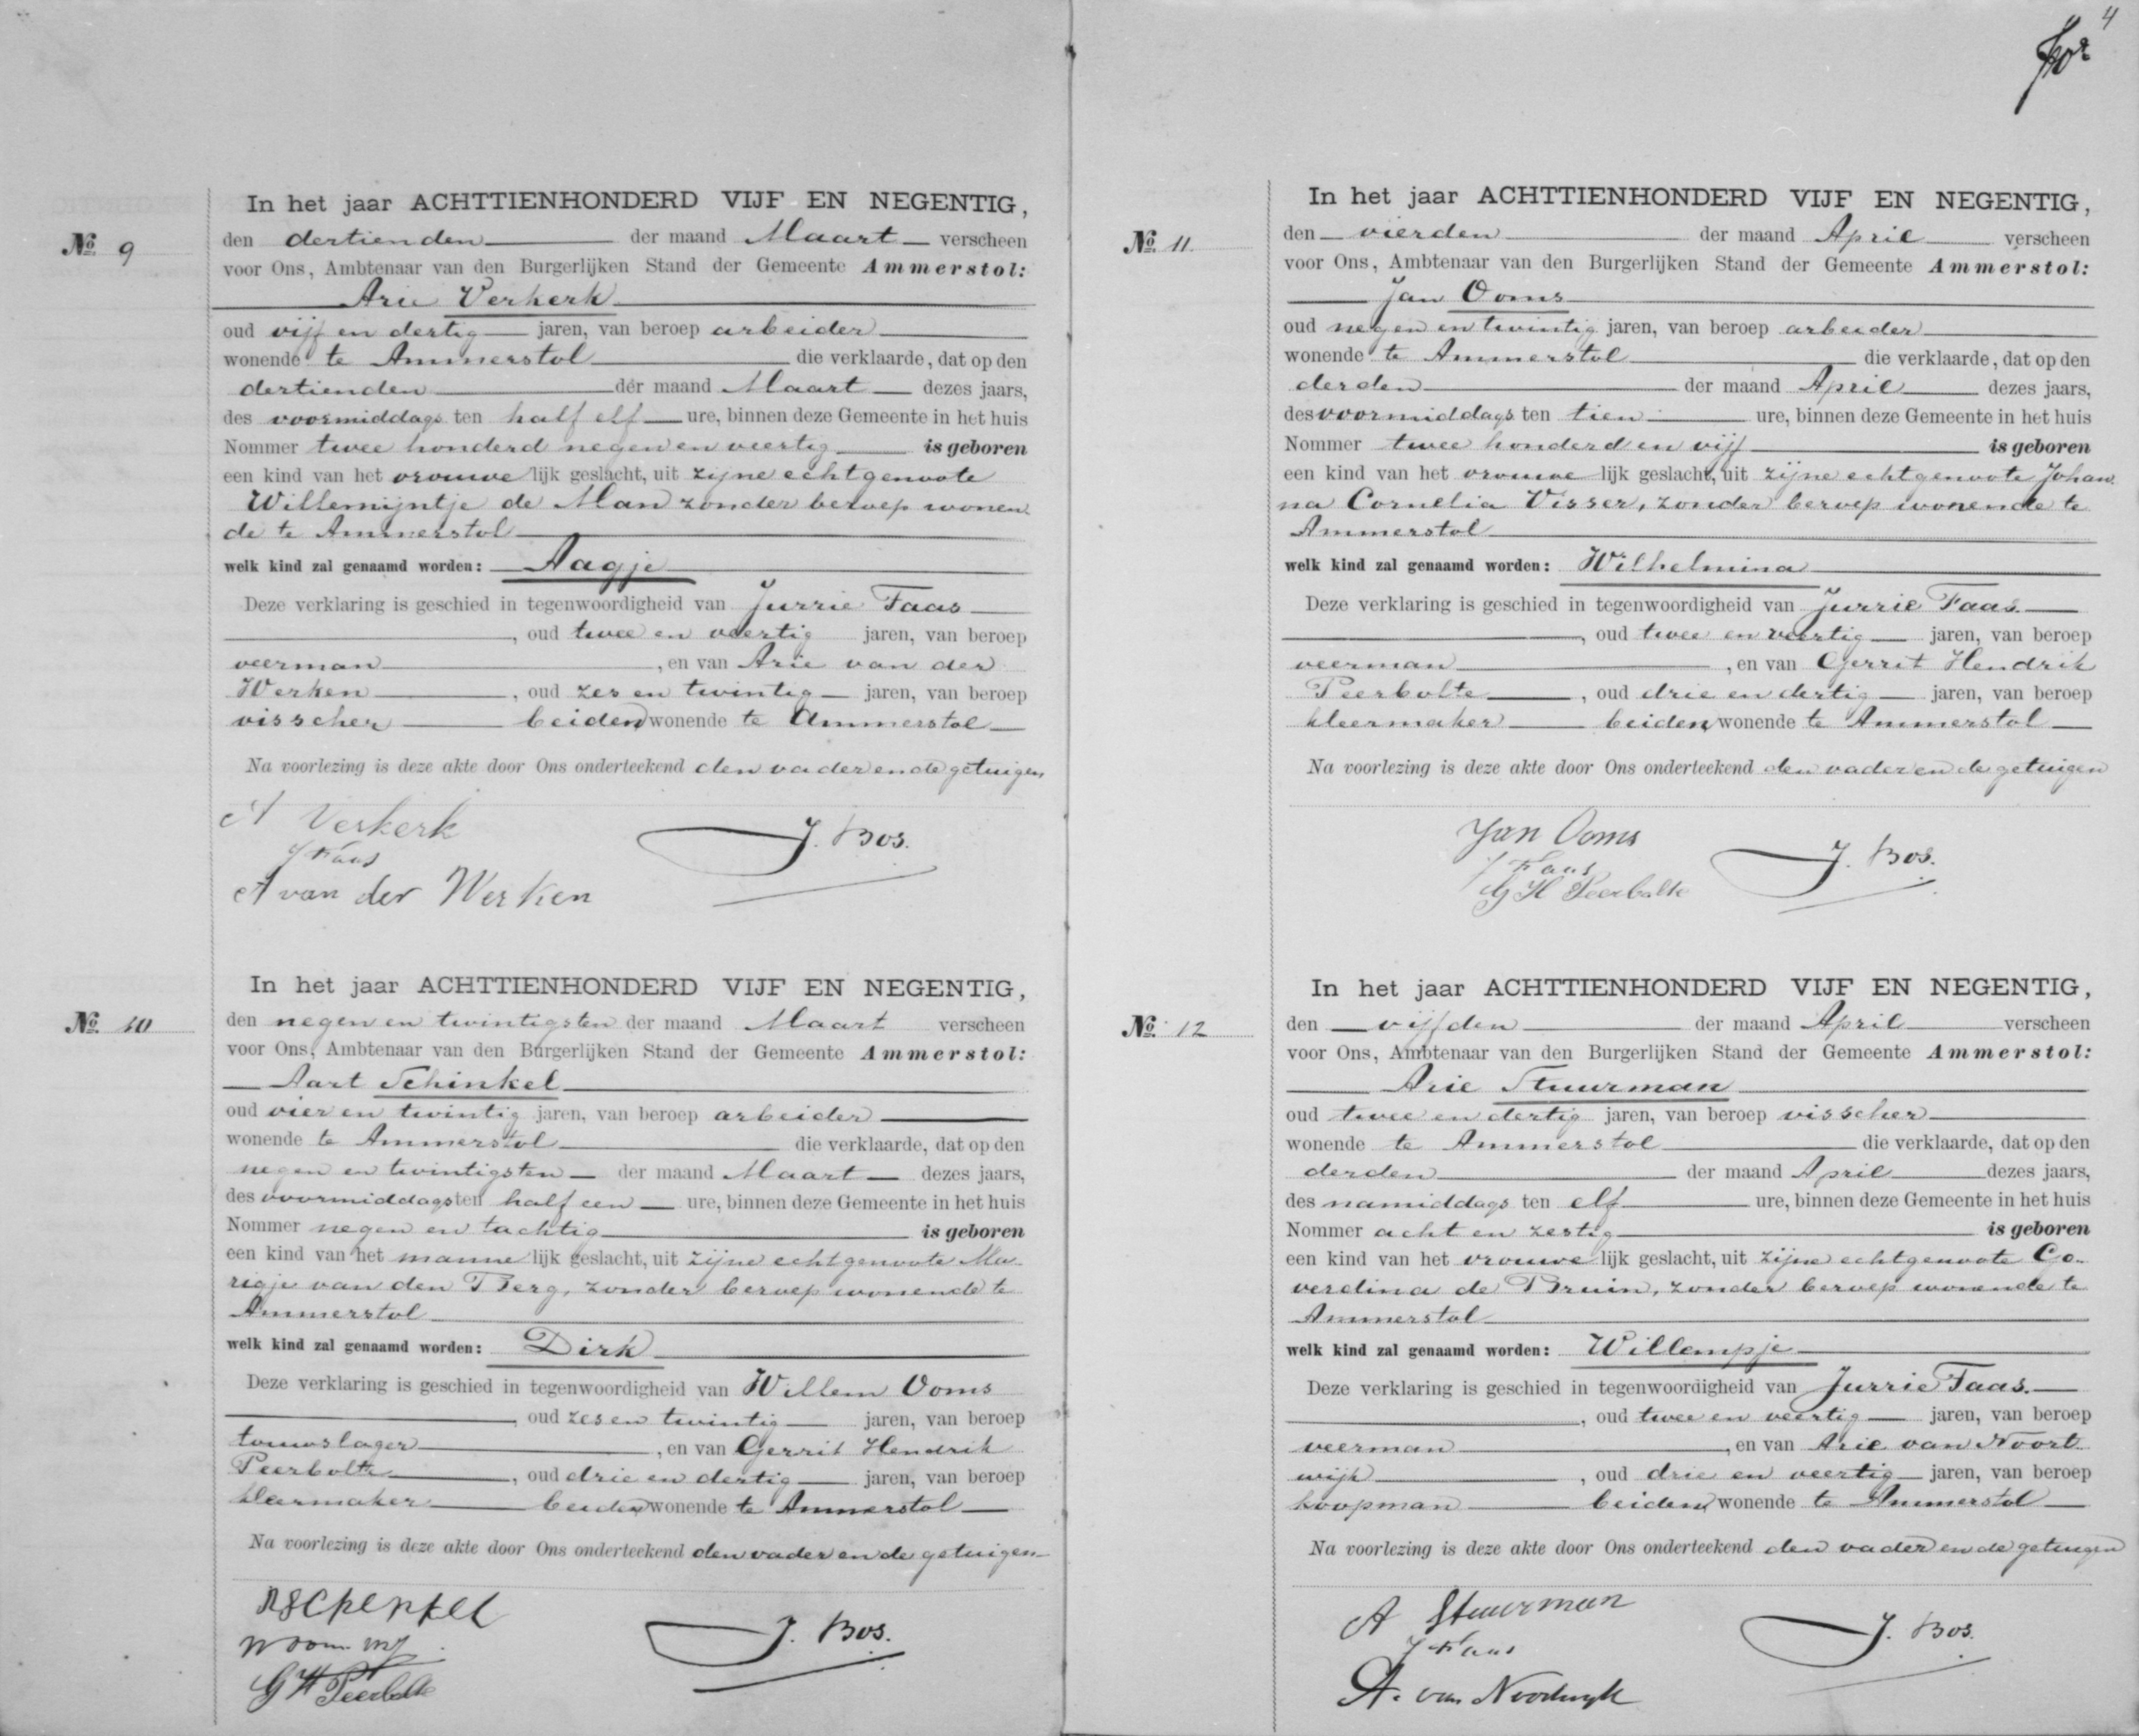 4
No 9
In het jaar ACHTTIENHONDERD VIJF EN NEGENTIG,
den dertienden der maand Maart verscheen
voor Ons, Ambtenaar van den Burgerlijken Stand der Gemeente Ammerstol:
Arie Verkerk
oud vijf en dertig jaren, van beroep arbeider
wonende te Ammerstol die verklaarde, dat op den
dertienden der maand Maart dezes jaars,
des voormiddags ten half elf ure, binnen deze Gemeente in het huis
Nommer twee honderd negen en veertig is geboren
een kind van het vrouwe lijk geslacht, uit zijne echtgenoote
Willemijntje de Man zonder beroep wonen
de te Ammerstol
welk kind zal genaamd worden: Aagje
Deze verklaring is geschied in tegenwoordigheid van Jurrie Faas
, oud twee en veertig jaren, van beroep
veerman , en van Arie van der
Werken , oud zes en twintig jaren, van beroep
visscher beiden wonende te Ammerstol
Na voorlezing is deze akte door Ons onderteekend den vader en de getuigen
A Verkerk
J Faas
J. Bos.
A van der Werken
No 10
In het jaar ACHTTIENHONDERD VIJF EN NEGENTIG,
den negen en twintigsten der maand Maart verscheen
voor Ons, Ambtenaar van den Burgerlijken Stand der Gemeente Ammerstol:
Aart Schinkel
oud vier en twintig jaren, van beroep arbeider
wonende te Ammerstol die verklaarde, dat op den
negen en twintigsten der maand Maart dezes jaars,
des voormiddags ten half een ure, binnen deze Gemeente in het huis
Nommer negen en tachtig is geboren
een kind van het manne lijk geslacht, uit zijne echtgenoote Ma-
rigje van den Berg, zonder beroep wonende te
Ammerstol
welk kind zal genaamd worden: Dirk
Deze verklaring is geschied in tegenwoordigheid van Willem Ooms
, oud zes en twintig jaren, van beroep
touwslager , en van Gerrit Hendrik
Peerbolte , oud drie en dertig jaren, van beroep
kleermaker beiden wonende te Ammerstol
Na voorlezing is deze akte door Ons onderteekend den vader en de getuigen
J. Bos.
G H Peerbolte
No 11.
In het jaar ACHTTIENHONDERD VIJF EN NEGENTIG,
den vierden der maand April verscheen
voor Ons, Ambtenaar van den Burgerlijken Stand der Gemeente Ammerstol:
Jan Ooms
oud negen en twintig jaren, van beroep arbeider
wonende te Ammerstol die verklaarde, dat op den
derden der maand April dezes jaars,
des voormiddags ten tien ure, binnen deze Gemeente in het huis
Nommer twee honderd en vijf is geboren
een kind van het vrouwe lijk geslacht, uit zijne echtgenoote Johan
na Cornelia Visser, zonder beroep wonende te
Ammerstol
welk kind zal genaamd worden: Wilhelmina
Deze verklaring is geschied in tegenwoordigheid van Jurrie Faas.
, oud twee en veertig jaren, van beroep
veerman , en van Gerrit Hendrik
Peerbolte , oud drie en dertig jaren, van beroep
kleermaker beiden wonende te Ammerstol
Na voorlezing is deze akte door Ons onderteekend den vader en de getuigen
Jan Ooms
J Faas
J. Bos.
G H Peerbolte
No 12
In het jaar ACHTTIENHONDERD VIJF EN NEGENTIG,
den vijfden der maand April verscheen
voor Ons, Ambtenaar van den Burgerlijken Stand der Gemeente Ammerstol:
Arie Stuurman
oud twee en dertig jaren, van beroep visscher
wonende te Ammerstol die verklaarde, dat op den
derden der maand April dezes jaars,
des namiddags ten elf ure, binnen deze Gemeente in het huis
Nommer acht en zestig is geboren
een kind van het vrouwe lijk geslacht, uit zijne echtgenoote Co-
verdina de Bruin, zonder beroep wonende te
Ammerstol
welk kind zal genaamd worden: Willempje
Deze verklaring is geschied in tegenwoordigheid van Jurrie Faas.
, oud twee en veertig jaren, van beroep
veerman , en van Arie van Noort
wijk , oud drie en veertig jaren, van beroep
koopman beiden wonende te Ammerstol
Na voorlezing is deze akte door Ons onderteekend den vader en de getuigen
A Stuurman
J Faas
J. Bos.
A. van Noordwyk